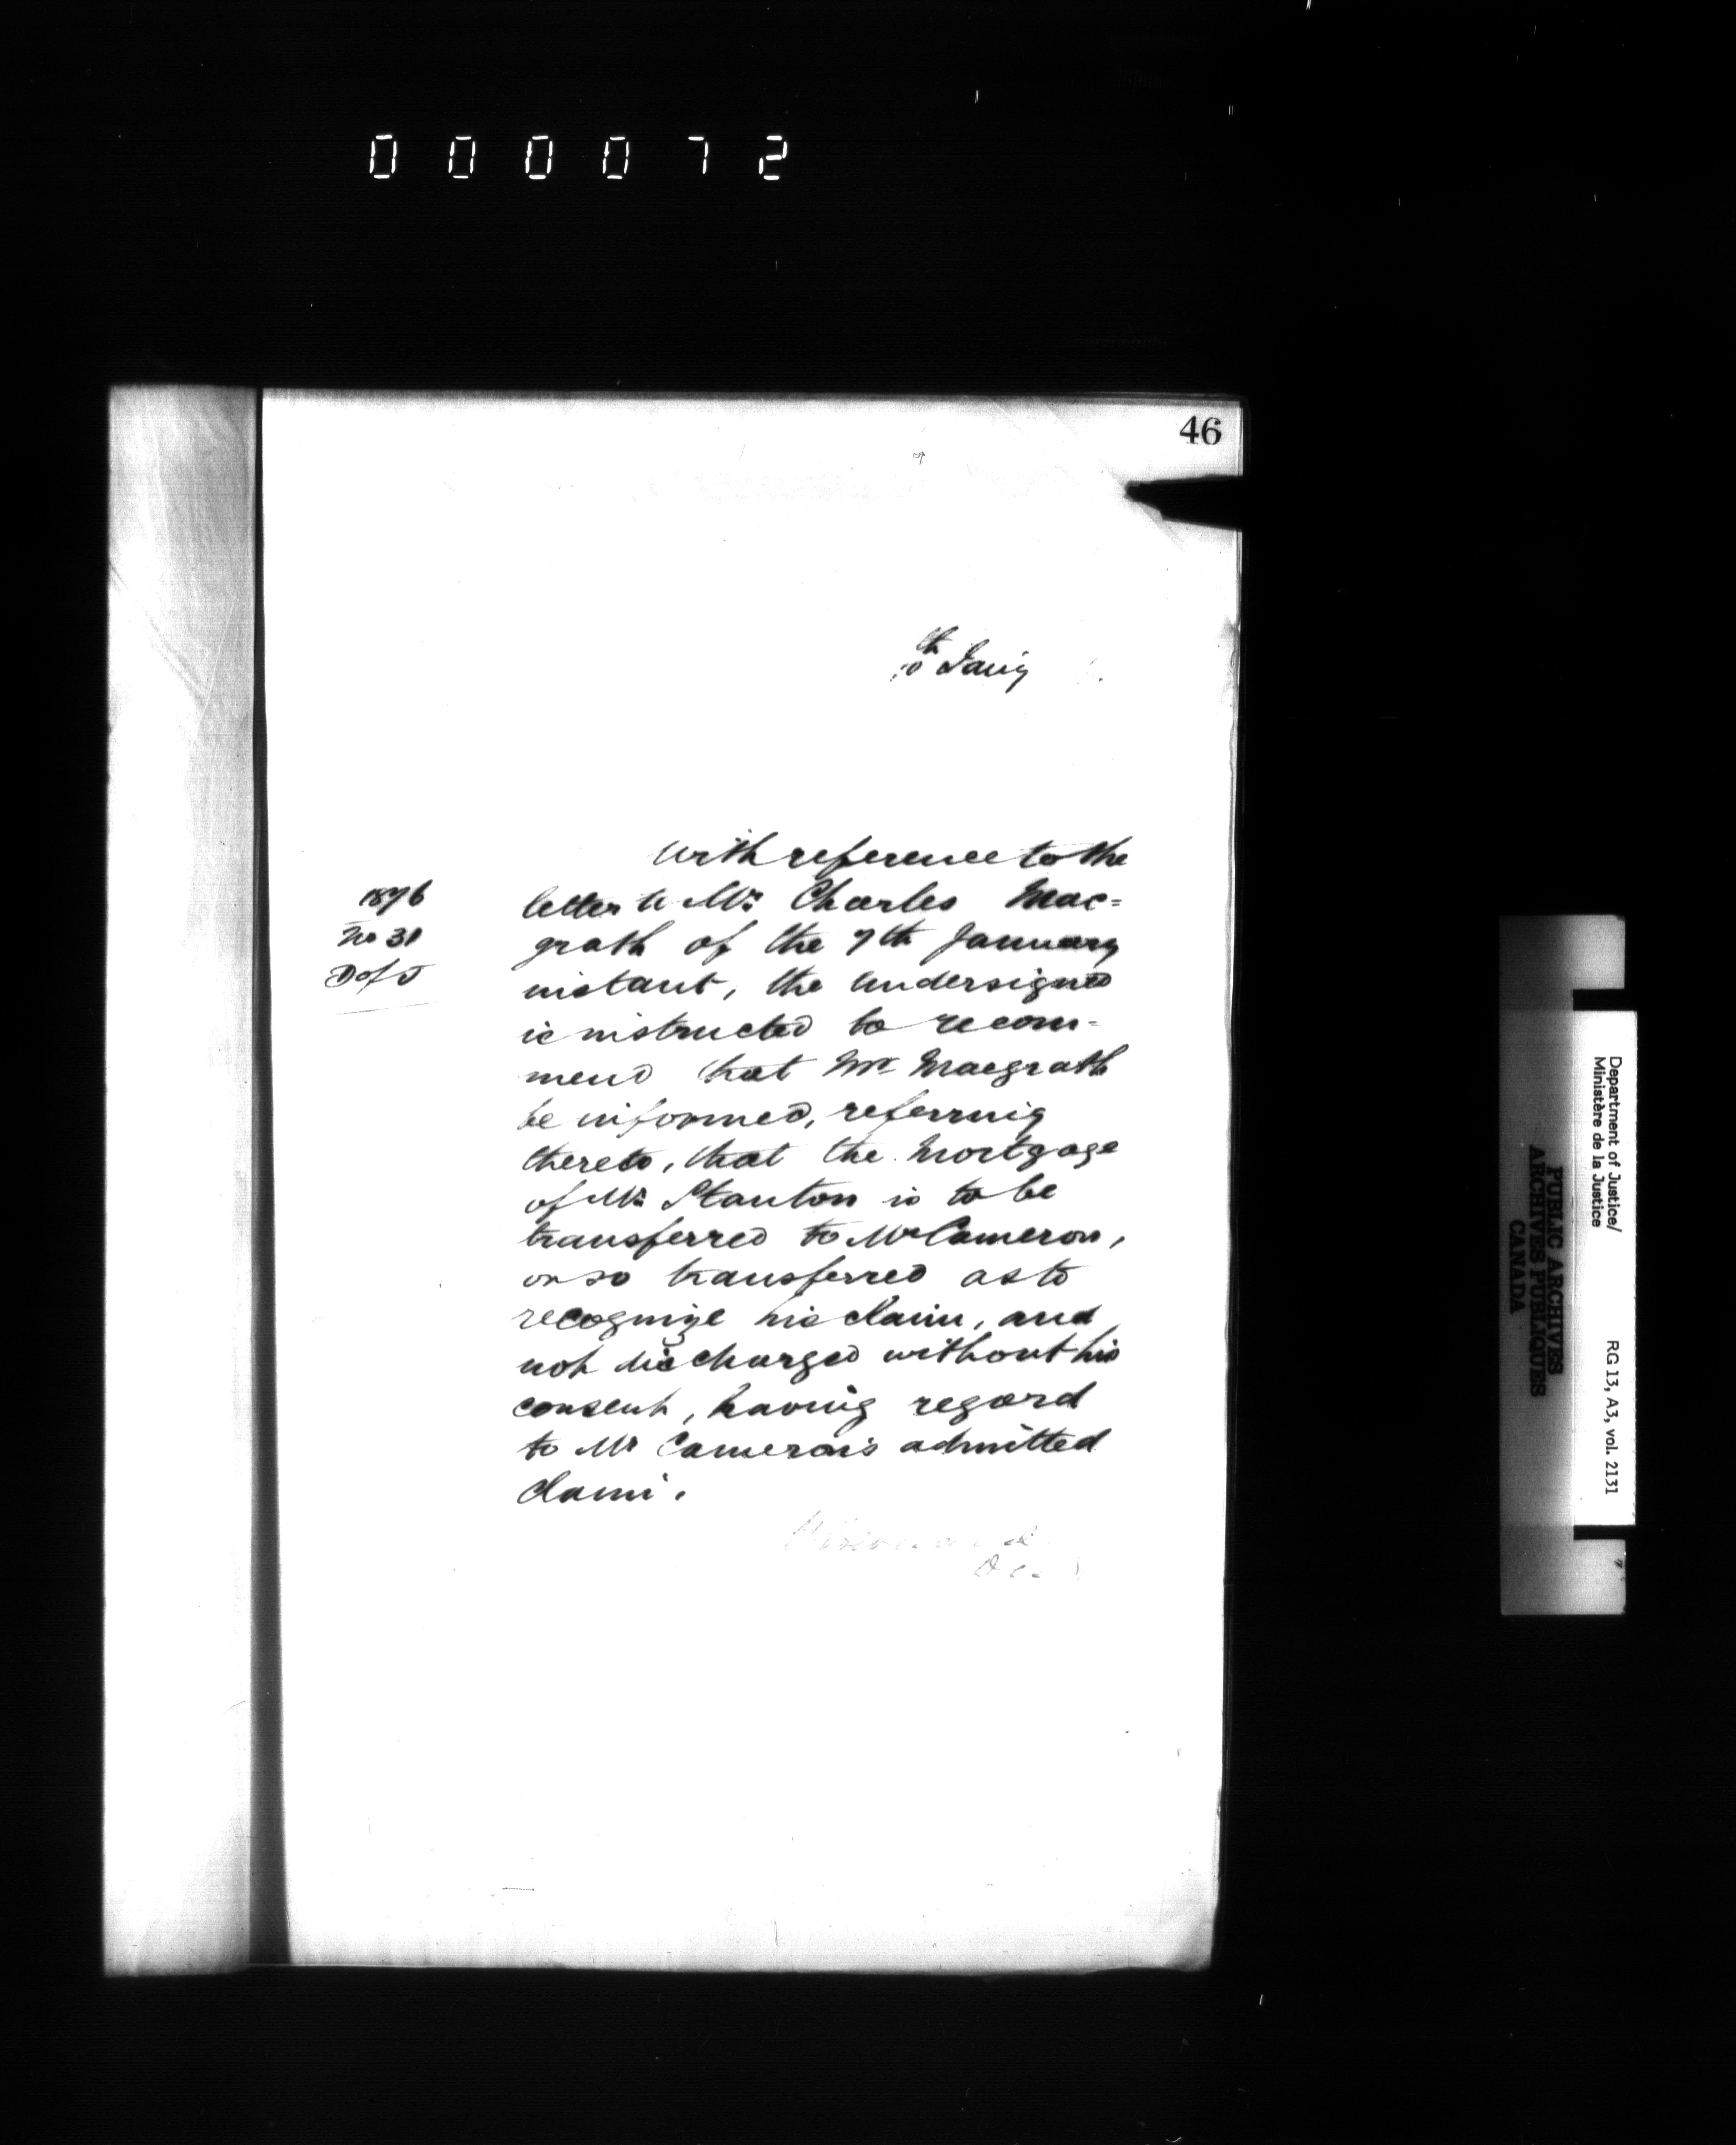 000072
46
th Jany
1876
No 31
D of J
With reference to the
letter to Mr. Charles Mac=
grath of the 7th January
instant, the undersigned
is instructed to recom-
mend that Mr Macgrath
be informed, referring
thereto, that the Mortgage
of Mr. Stanton is to be
transferred to Mr Cameron,
or so transferred as to
recognize his claim, and
not discharged without his
consent, having regard
to Mr Cameron's admitted
claim.
Department of Justice/
Ministère de la Justice
RG 13, A3, vol. 2131
PUBLIC ARCHIVES
ARCHIVES PUBLIQUES
CANADA